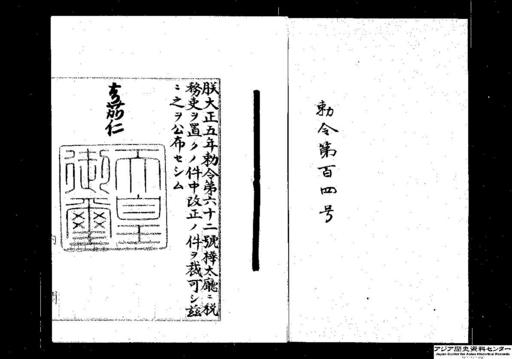 勅令第百四号
朕大正五年勅令第六十二號樺太廳ニ税
務吏ヲ置クノ件中改正ノ件ヲ裁可シ茲
ニ之ヲ公布セシム
嘉仁
天皇
御璽
アジア歴史資料センター
Japan Center for Asian Historical Records